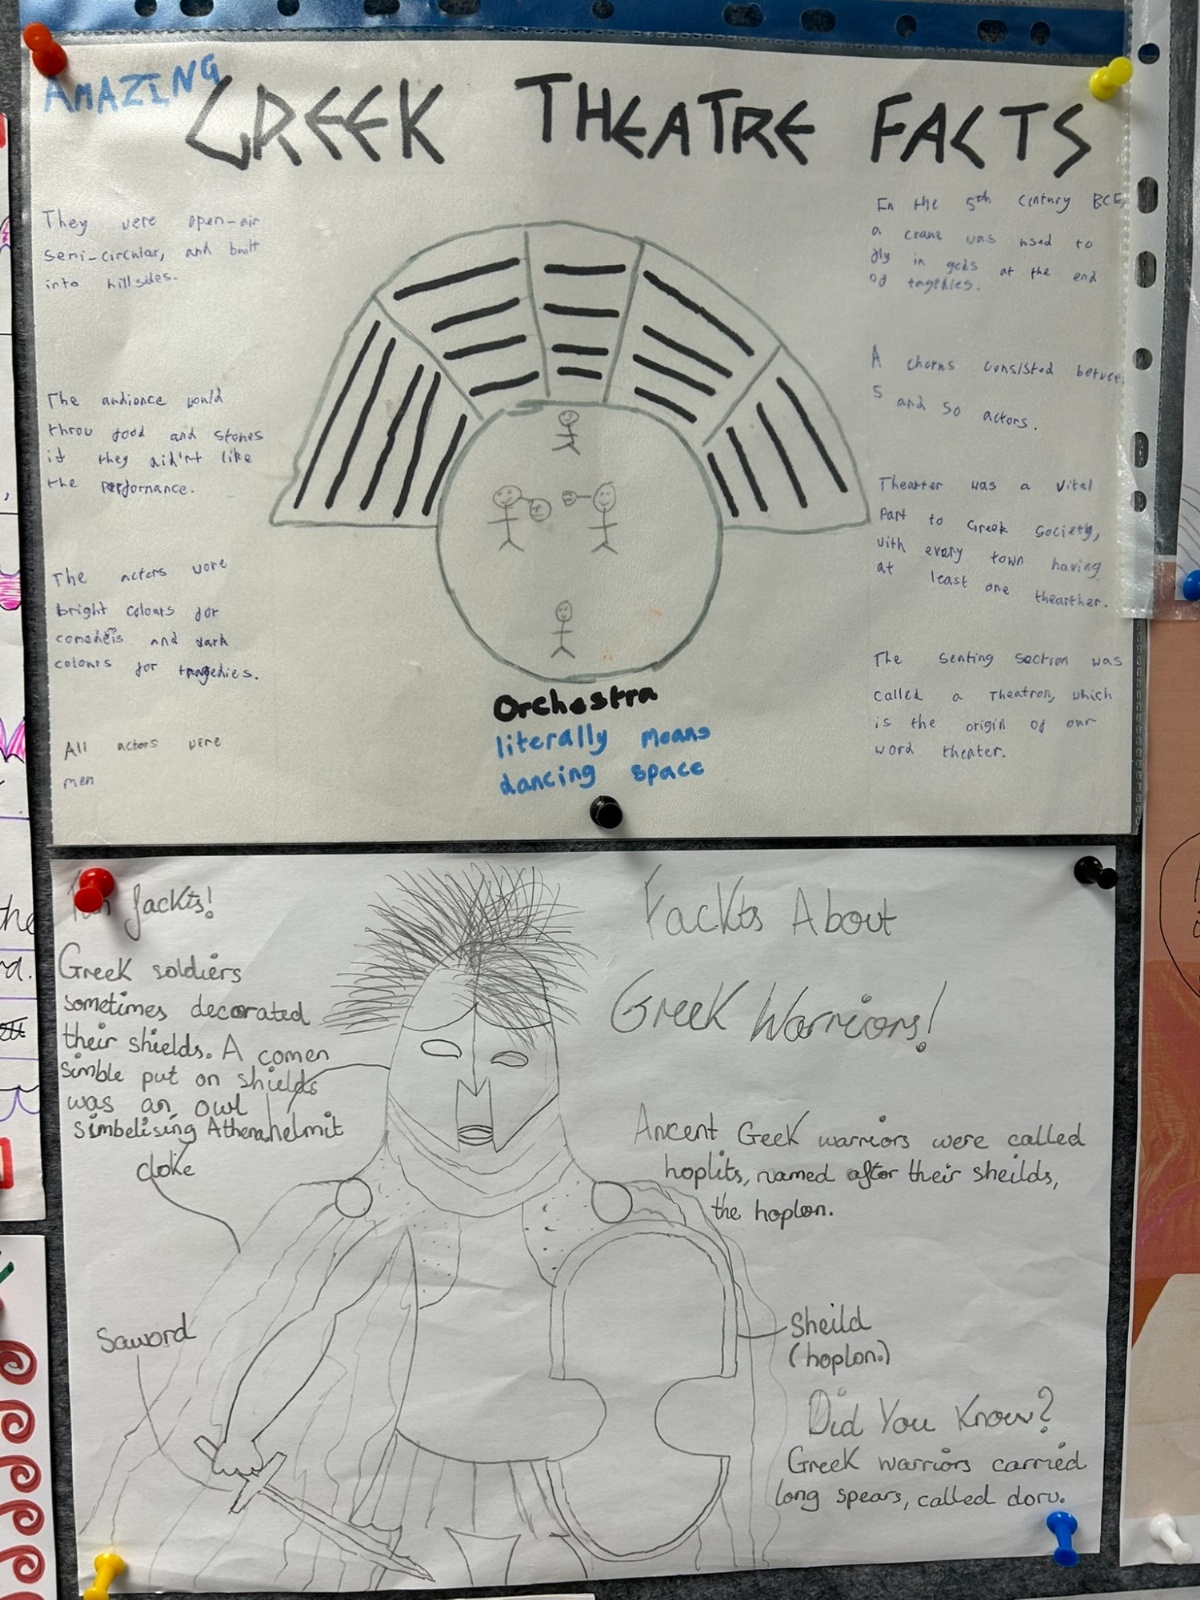 AMAZING
GREEK THEATRE FACTS
They were open-air
semi-circular, and built
into hillsides.
The audience would
throw food and stones
if they didn't like
the performance.
The actors wore
bright colours for
comedeis and dark
colours for tragedies.
All actors were
men
Orchestra
literally means
dancing space
In the 5th century BCE,
a crane was used to
fly in gods at the end
of tragedies.
A chorus consisted
5 and 50 actors.
Thearter was a vital
part to Greek society,
with every town having
at least one thearther.
The seating section was
called a Theatron, which
is the origin of our
word theater.
fackts!
Greek soldiers
sometimes decorated
their shields. A comen
simble put on shields
was an owl
simbelising Athena.
helmit
cloke
Saword
Fackts About
Greek Warriors!
Ancent Geek warriors were called
hoplits, named after their sheilds,
the hoplon.
Sheild
(hoplon.)
Did You Know?
Greek warriors carried
long spears, called doru.